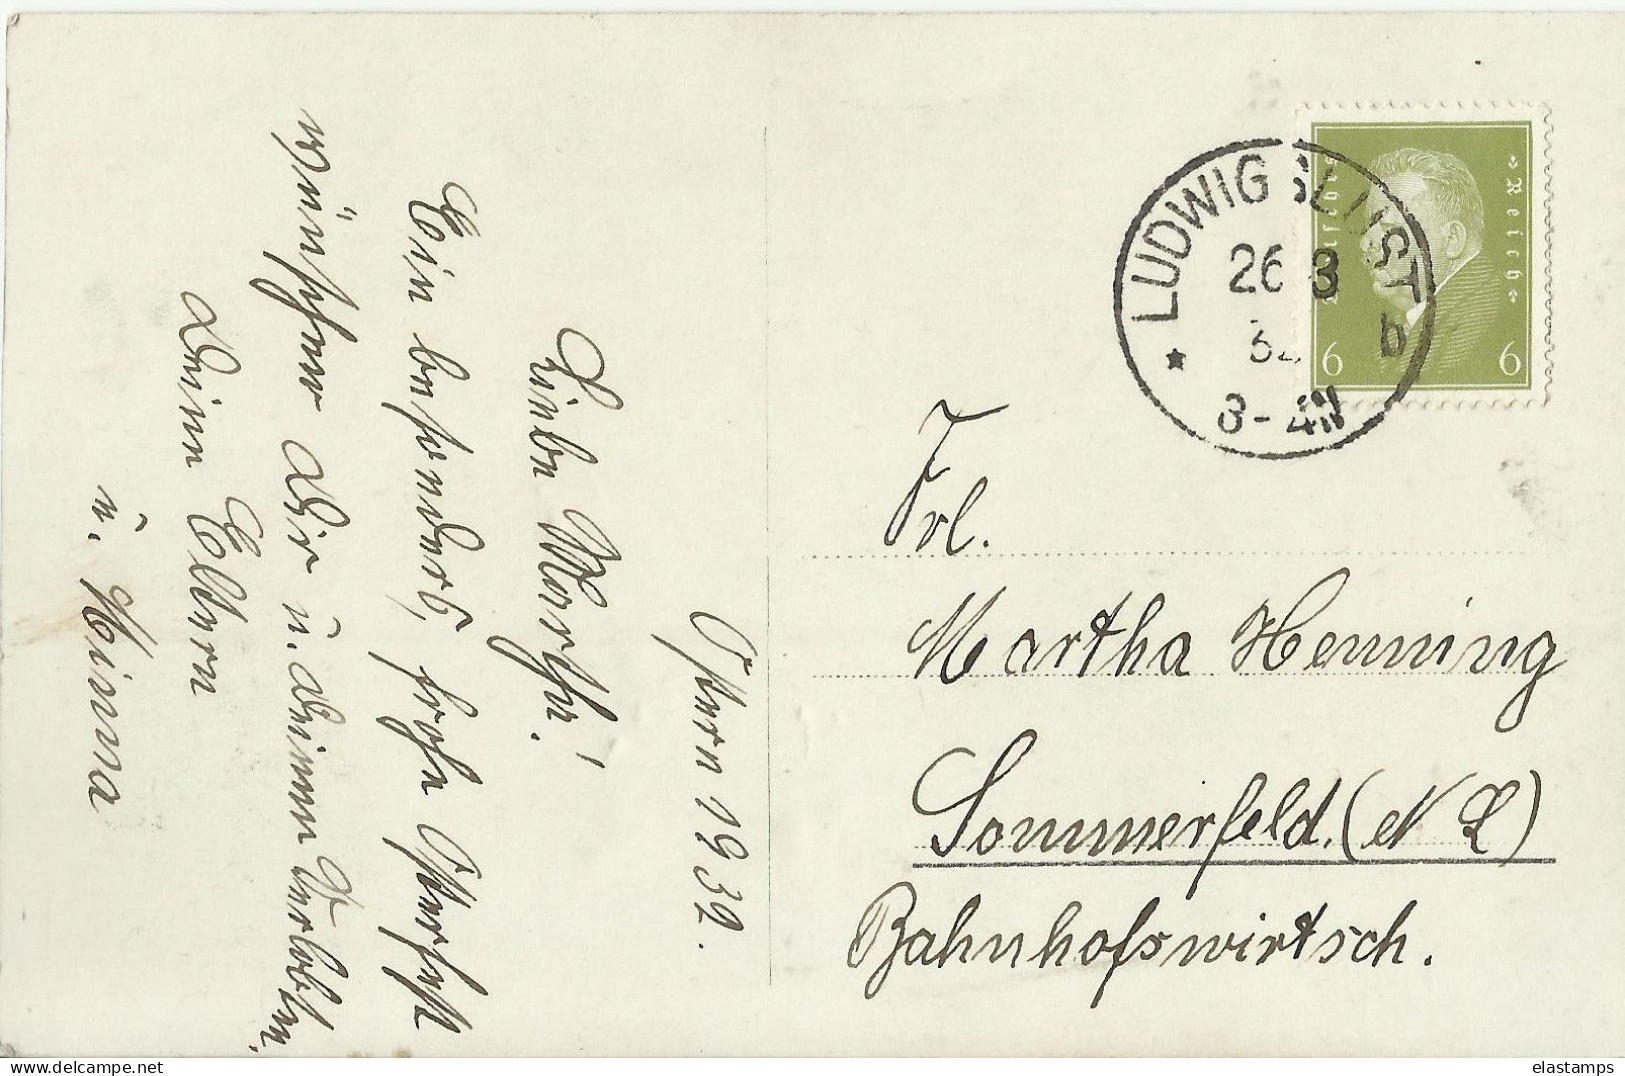 Ostern 1932.
Liebe Marthe!
Ein besonders, frohes Osterfest
wünschen Dir u. Deinem Verlobten.
Deine Eltern
u. Minna
LUDWIGSLUST
26 3
32 b
Deutsches
Reich
6 6
Frl.
Martha Henning
Sommerfeld. (N L)
Bahnhofswirtsch.
elastamps